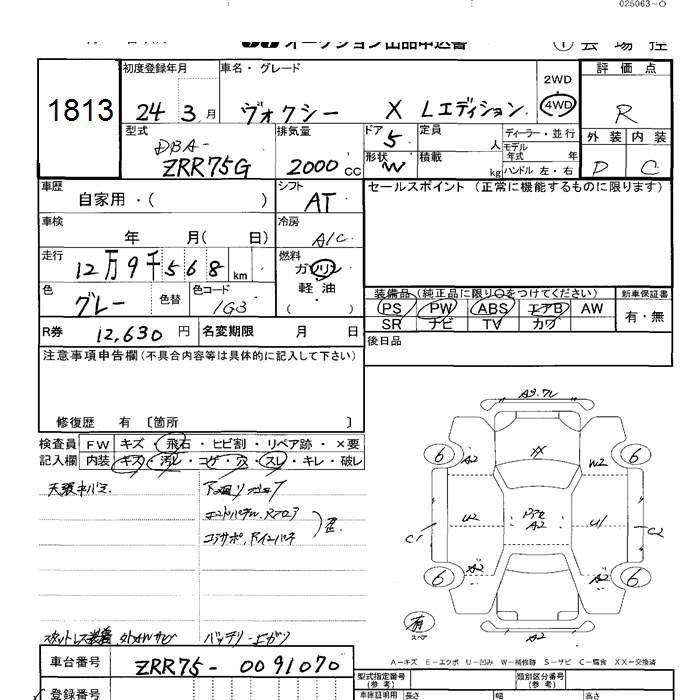 025063-O
オークション出品申込書 ① 会場控
1813
初度登録年月 24 3月
車名・グレード ヴォクシー X Lエディション
2WD
4WD
評価点 R
外装 内装
D C
型式 DBA-
ZRR75G
排気量 2000 CC
ドア 5
形状 W
定員 人
積載 kg
ディーラー・並行
モデル年式 年
ハンドル 左・右
車歴 自家用・( )
シフト AT
セールスポイント (正常に機能するものに限ります)
車検 年 月( 日)
冷房 A/C
走行 12万9千568 km
燃料 ガソリン
軽油
( )
色 グレー 色替
色コード 1G3
装備品 (純正品に限り○をつけてください) 新車保証書
PS PW ABS エアB AW 有・無
SR ナビ TV カワ
R券 12,630円 名変期限 月 日
後日品
注意事項申告欄 (不具合内容等は具体的に記入して下さい)
修復歴 有 〔箇所 〕
検査員 FW キズ・飛石・ヒビ割・リペア跡・×要
記入欄 内装 キズ・汚レ・コゲ・穴・スレ・キレ・破レ
バッテリー上ガリ
6 A2 XX W2 6
C1 U2 A2 U1 C2
6 A2 A2 6
有 スペア A2
A-キズ E-エクボ U-凹み W-補修跡 S-サビ C-腐食 XX-交換済
車台番号 ZRR75-0091070
型式指定番号 (参考) 類別区分番号 (参考)
登録番号
車庫証明用 長さ 幅 高さ